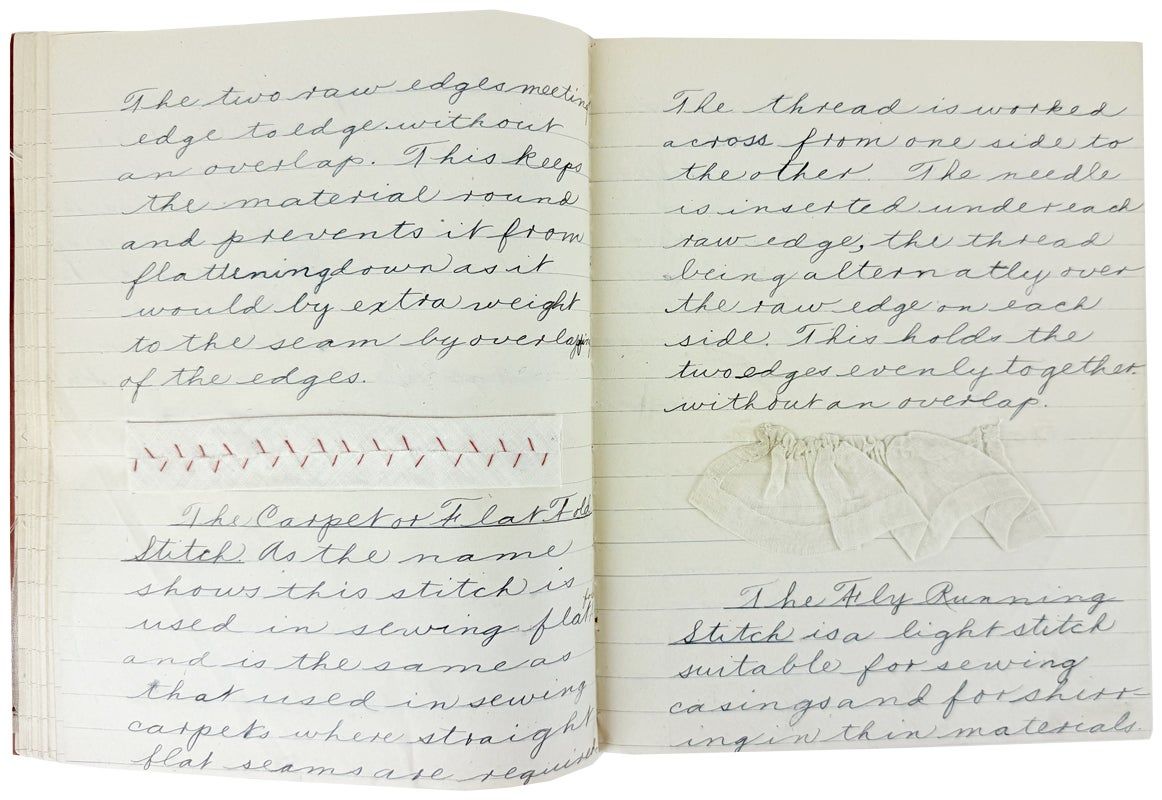 The two raw edges meeting
edge to edge without
an overlap. This keeps
the material round
and prevents it from
flatteningdown as it
would by extra weight
to the seam by overlapping
of the edges.
The Carpet or Flat Fold
Stitch. As the name
shows this stitch is
used in sewing flat
and is the same as
that used in sewing
carpets where straight
flat seams are required
The thread is worked
across from one side to
the other. The needle
is inserted under each
raw edge, the thread
being alternatly over
the raw edge on each
side. This holds the
two edges evenly together
without an overlap.
The Fly Running
Stitch is a light stitch
suitable for sewing
casings and for shirr-
ing in thin materials.